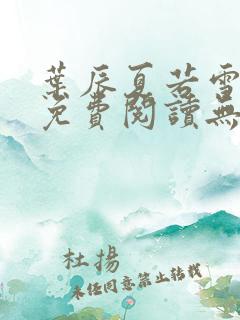 葉辰夏若雪
免費閱讀無
杜揚
未経同意禁止转载